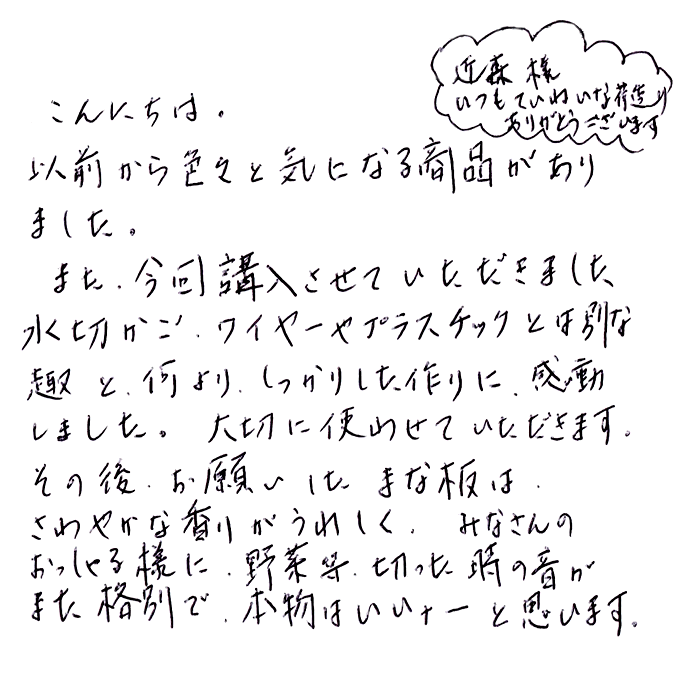 近森 様
いつもていねいな荷造り
ありがとうございます
こんにちは。
以前から色々と気になる商品があり
ました。
また、今回講入させていただきました
水切かご、ワイヤーやプラスチックとは別な
趣と、何より、しっかりした作りに、感動
しました。大切に使わせていただきます。
その後、お願いしたまな板は、
さわやかな香りがうれしく、みなさんの
おっしゃる様に、野菜等、切った時の音が
また格別で、本物はいいナーと思います。